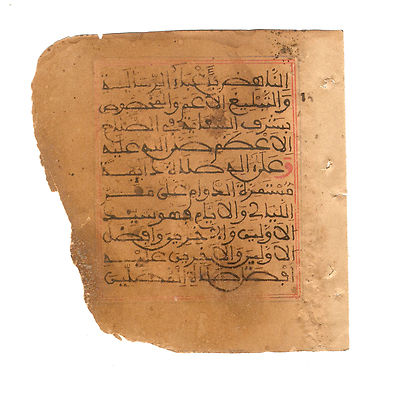 الناهض بأعباء الرسالة
والتبليغ الأعم والمخصوص
بشرف السعاية في الصلاح
الأعظم صلى الله عليه
وعلى آله صلاة دائمة
مستمرة الدوام على مر
الليالي والأيام فهو سيد
الأولين والآخرين وأفضل
الأولين والآخرين عليه
أفضل صلاة المصلين